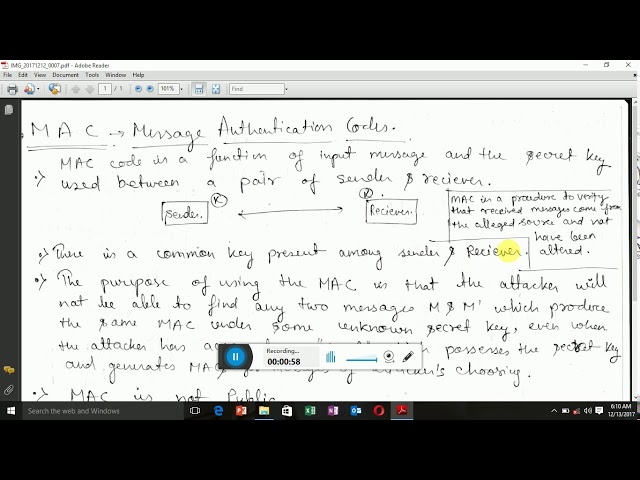 IMG_20171212_0007.pdf - Adobe Reader
File Edit View Document Tools Window Help
1 / 1 101% Find
MAC → Message Authentication Codes.
MAC code is a function of input message and the secret key
used between a pair of sender & reciever.
K K
Sender. Reciever.
MAC is a procedure to verify
that received messages come from
the alleged source and not
have been
altered.
There is a common key present among sender & Reciever.
The purpose of using the MAC is that the attacker will
not be able to find any two messages M & M' which produce
the same MAC under some unknown secret key, even when
the attacker has possesses the secret key
and generates MAC choosing.
MAC is not Public
Recording...
00:00:58
Search the web and Windows
6:10 AM
12/13/2017